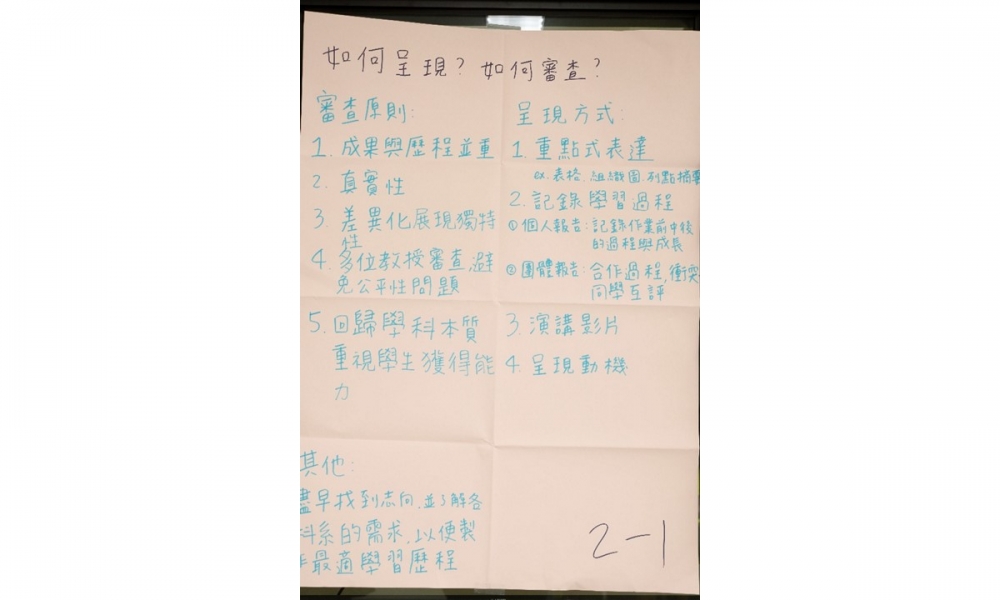 如何呈現? 如何審查?
審查原則:
1. 成果與歷程並重
2. 真實性
3. 差異化展現獨特
性
4. 多位教授審查,避
免公平性問題
5. 回歸學科本質
重視學生獲得能
力
其他:
儘早找到志向,並了解各
科系的需求,以便製
作最適學習歷程
呈現方式:
1. 重點式表達
ex.表格.組織圖.列點摘要
2. 記錄學習過程
①個人報告:記錄作業前中後
的過程與成長
②團體報告:合作過程,衝突
同學互評
3. 演講影片
4. 呈現動機
2-1